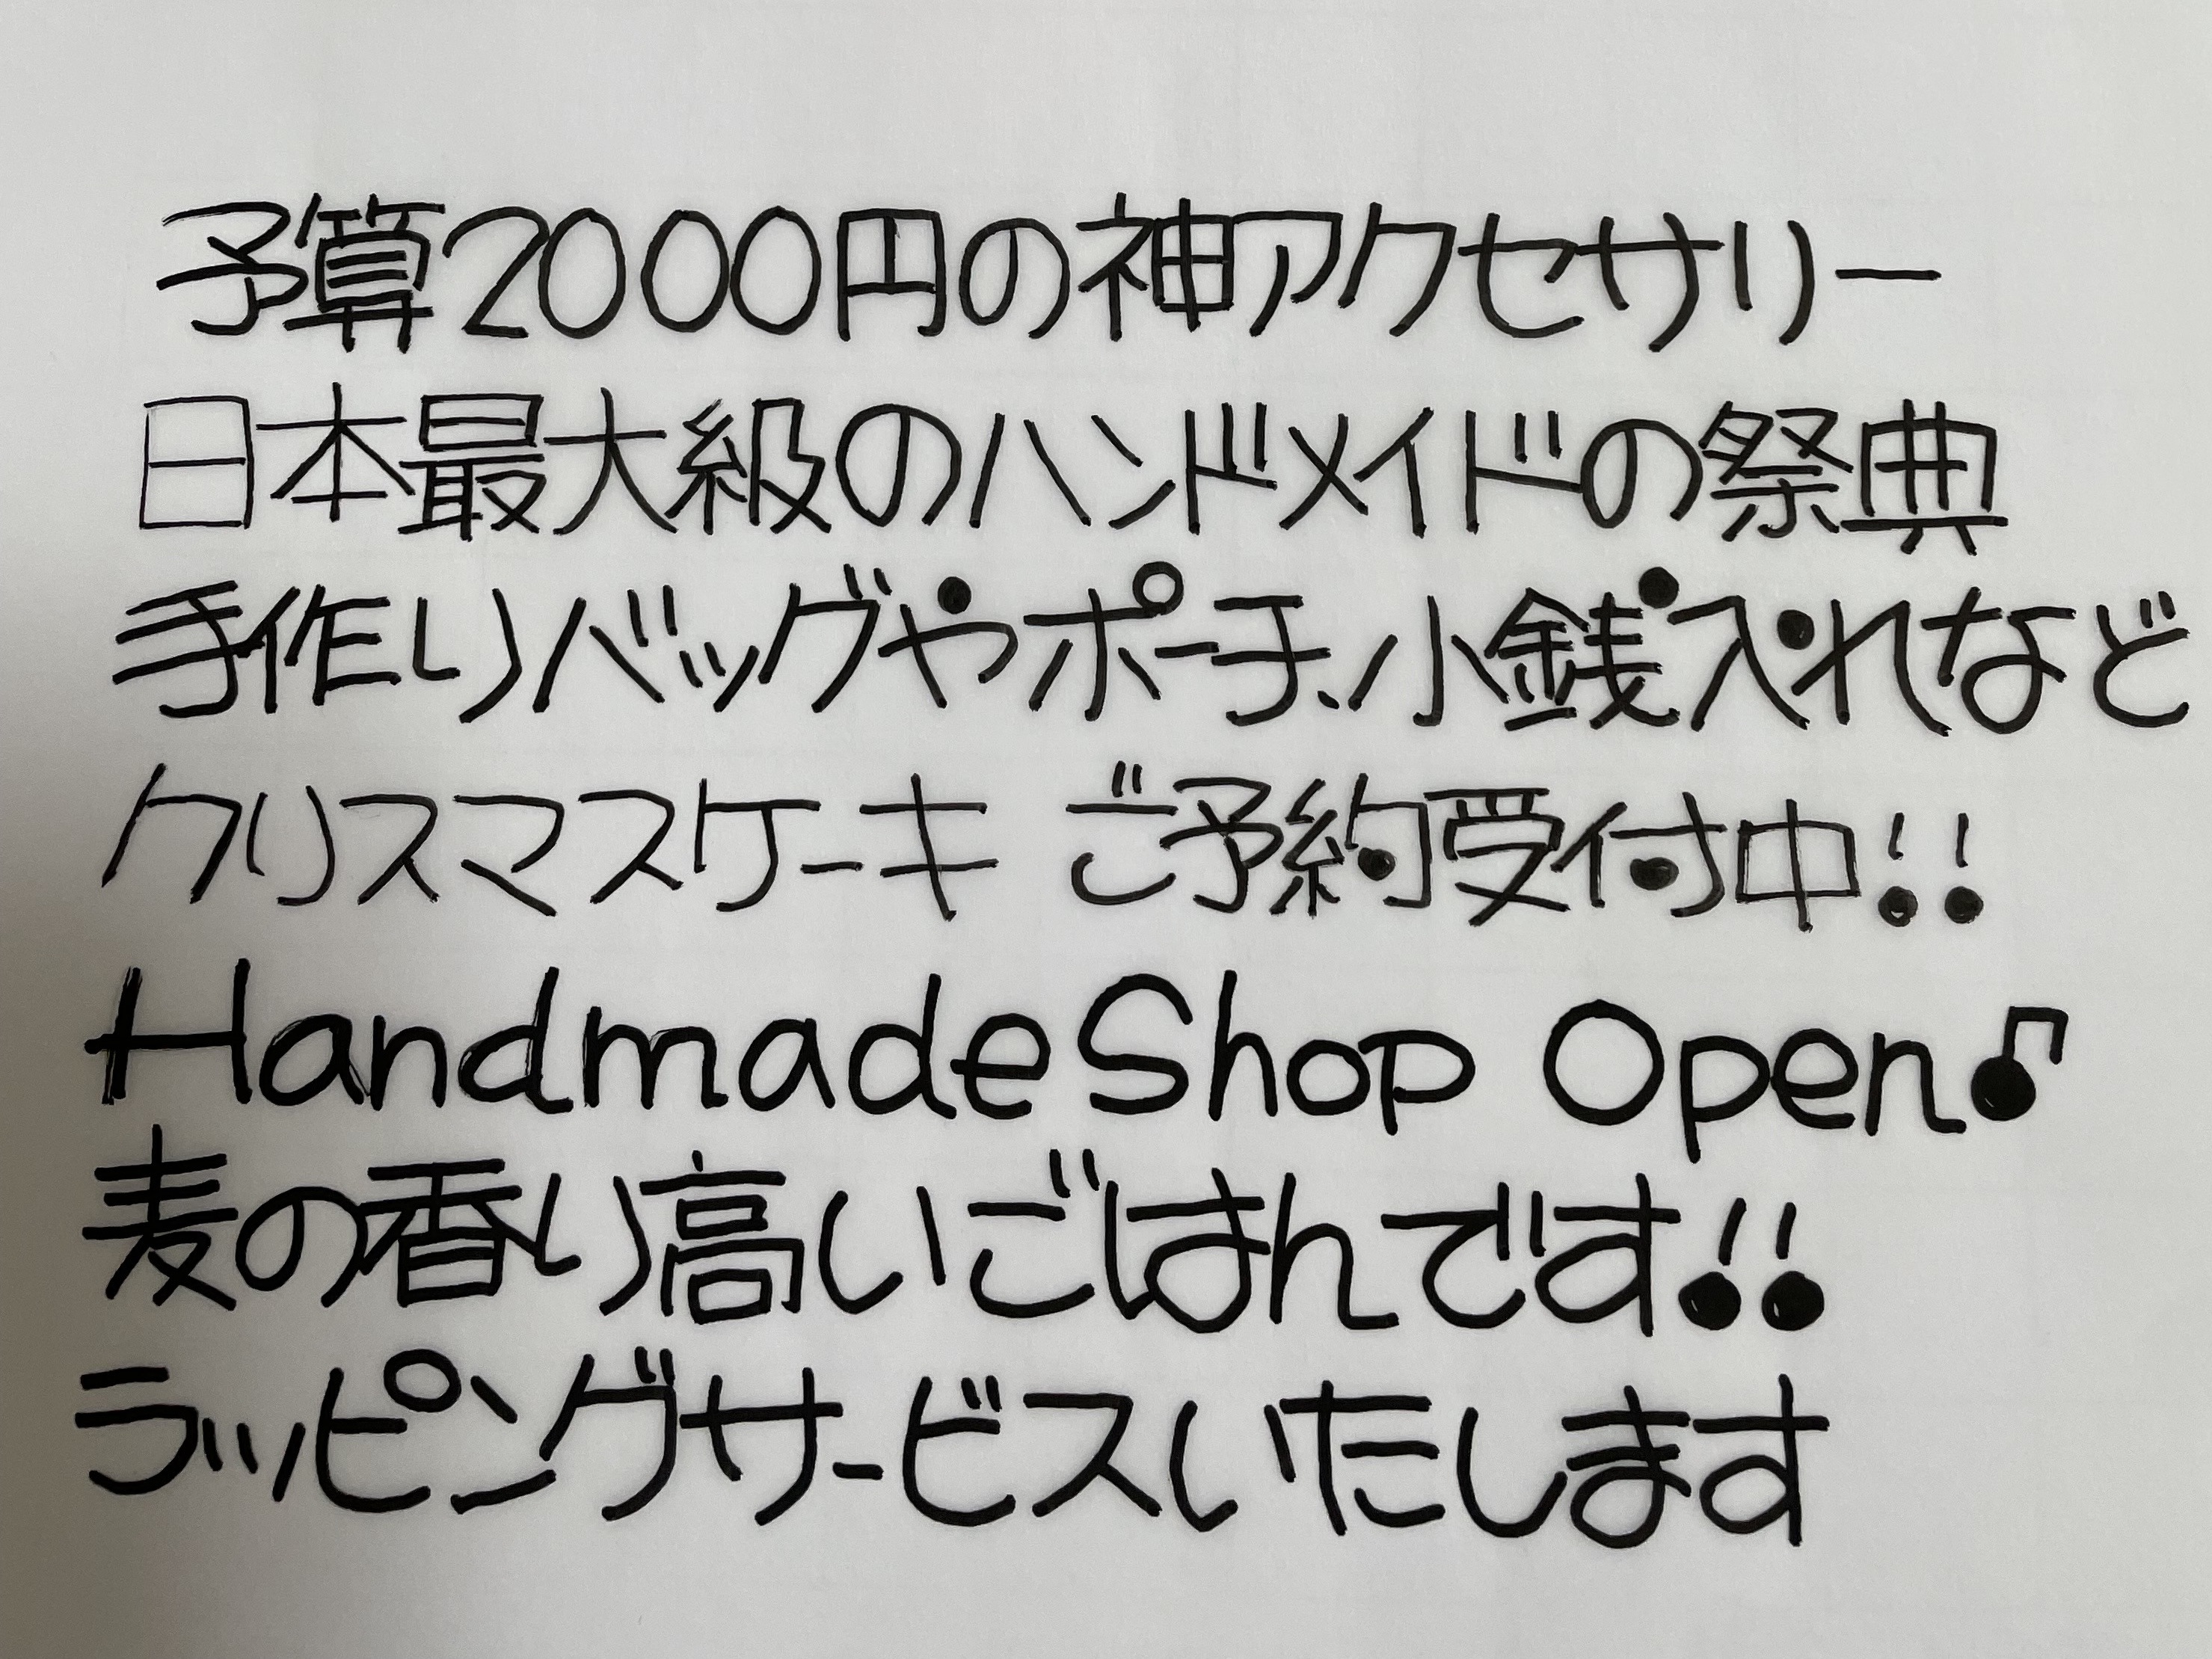 予算2000円の神アクセサリー
日本最大級のハンドメイドの祭典
手作りバッグやポーチ、小銭入れなど
クリスマスケーキ ご予約受付中!!
Handmade Shop Open♪
麦の香り高いごはんです!!
ラッピングサービスいたします